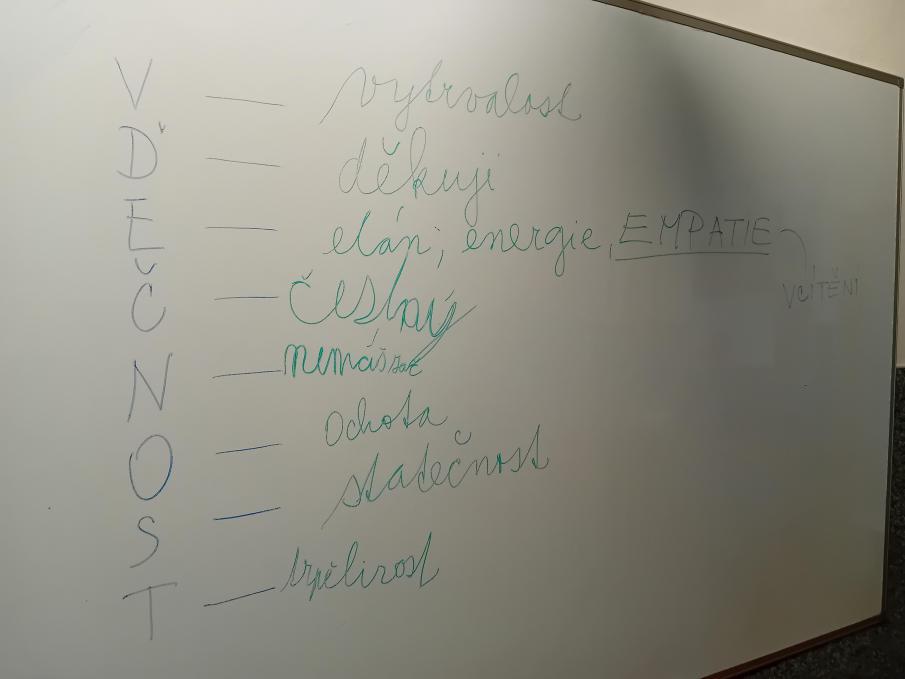 V — vytrvalost
Ď — děkuji
E — elán, energie, EMPATIE
VCÍTĚNÍ
Č — čestný
N — nemáš zač
O — Ochota
S — statečnost
T — trpělivost